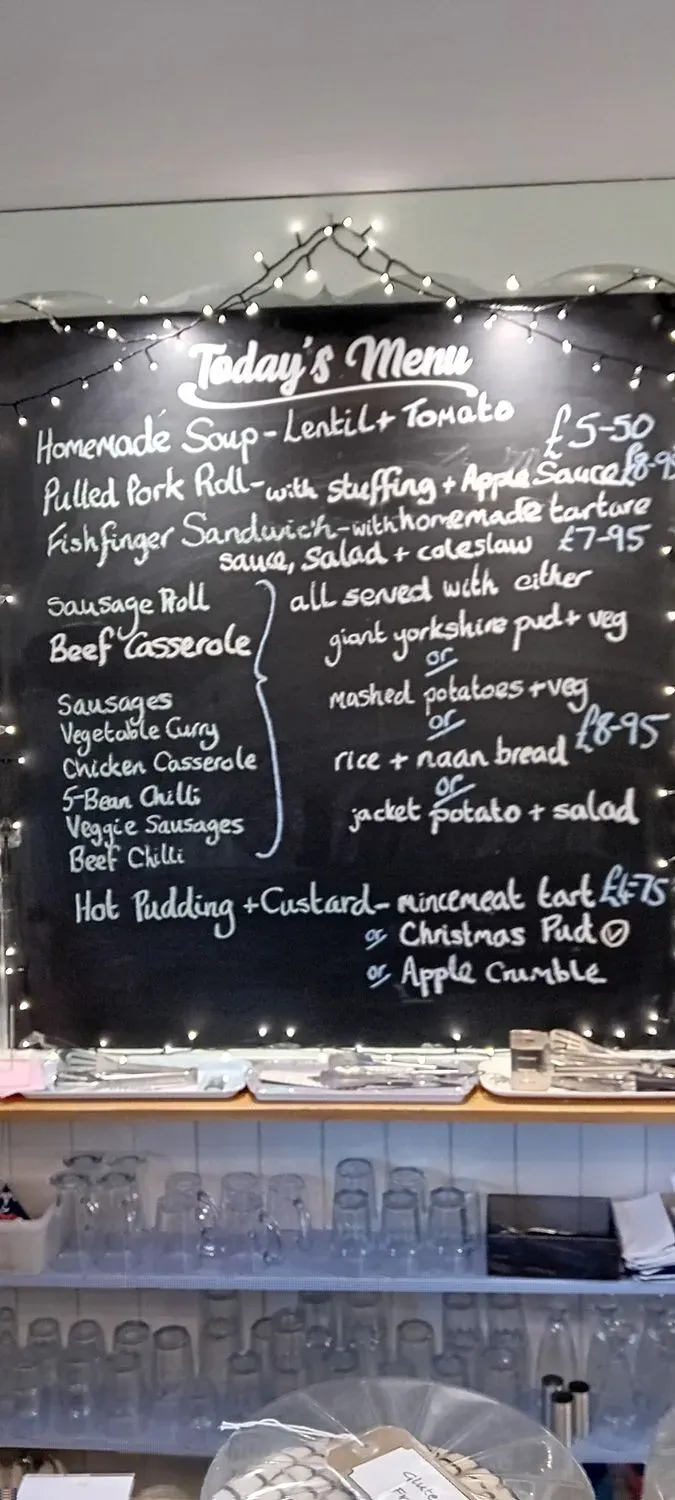 Today's Menu
Homemade Soup - Lentil + Tomato £5-50
Pulled Pork Roll - with stuffing + Apple Sauce £8-9
Fishfinger Sandwich - with homemade tartare
sauce, salad + coleslaw £7-95
Sausage Roll
Beef Casserole
Sausages
Vegetable Curry
Chicken Casserole
5-Bean Chilli
Veggie Sausages
Beef Chilli
all served with either
giant yorkshire pud + veg
or
mashed potatoes + veg
or
rice + naan bread £8-95
or
jacket potato + salad
Hot Pudding + Custard - mincemeat tart £4-75
or Christmas Pud V
or Apple Crumble
Glute